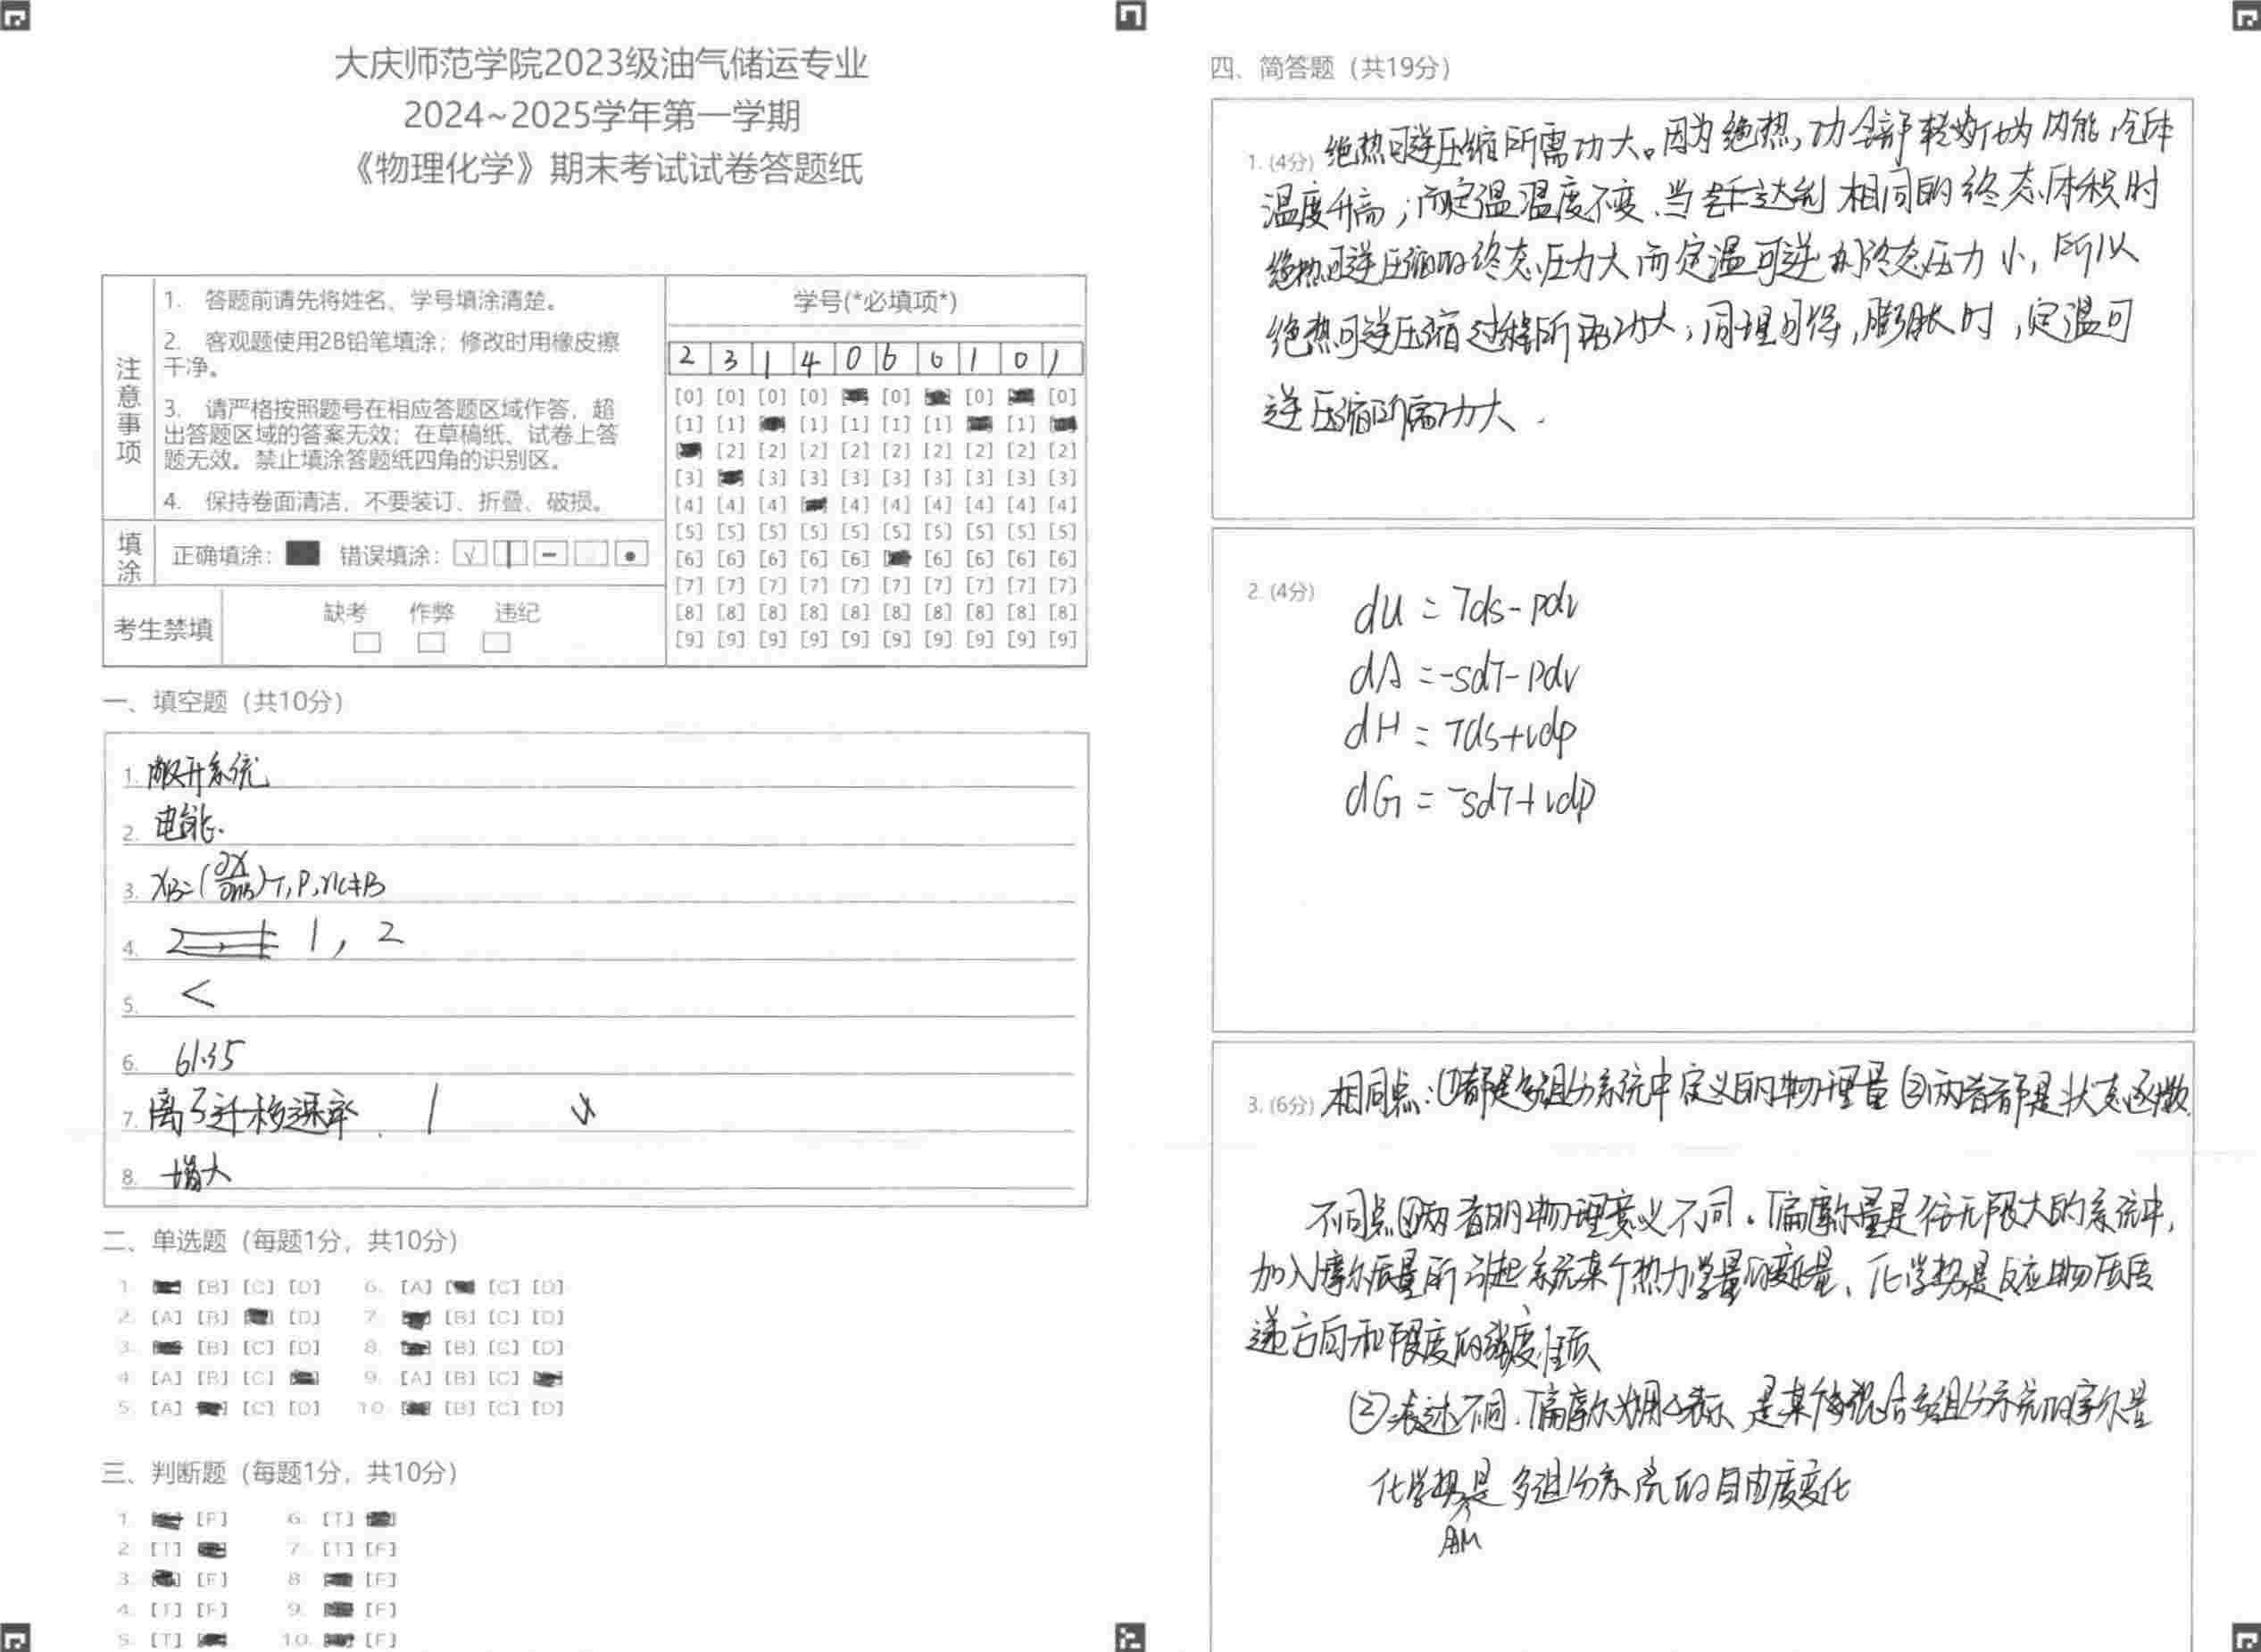 大庆师范学院2023级油气储运专业
2024~2025学年第一学期
《物理化学》期末考试试卷答题纸
注意事项
1. 答题前请先将姓名、学号填涂清楚。
2. 客观题使用2B铅笔填涂；修改时用橡皮擦
干净。
3. 请严格按照题号在相应答题区域作答，超
出答题区域的答案无效；在草稿纸、试卷上答
题无效。禁止填涂答题纸四角的识别区。
4. 保持卷面清洁，不要装订、折叠、破损。
填涂
正确填涂： 错误填涂：
考生禁填
缺考 作弊 违纪
学号(*必填项*)
2 3 1 4 0 6 0 1 0 1
[0] [0] [0] [0] [0] [0]
[1] [1] [1] [1] [1] [1] [1]
[2] [2] [2] [2] [2] [2] [2] [2] [2]
[3] [3] [3] [3] [3] [3] [3] [3] [3]
[4] [4] [4] [4] [4] [4] [4] [4] [4]
[5] [5] [5] [5] [5] [5] [5] [5] [5] [5]
[6] [6] [6] [6] [6] [6] [6] [6] [6]
[7] [7] [7] [7] [7] [7] [7] [7] [7] [7]
[8] [8] [8] [8] [8] [8] [8] [8] [8] [8]
[9] [9] [9] [9] [9] [9] [9] [9] [9] [9]
一、填空题（共10分）
1. 敞开系统
2. 电能.
3. XB=(∂X/∂nB)T,P,nC≠B
4. 1, 2
5. <
6. 61.35
7. 离子迁移速率. 1
8. 增大
二、单选题（每题1分，共10分）
1. [B] [C] [D] 6. [A] [C] [D]
2. [A] [B] [D] 7. [B] [C] [D]
3. [B] [C] [D] 8. [B] [C] [D]
4. [A] [B] [C] 9. [A] [B] [C]
5. [A] [C] [D] 10. [B] [C] [D]
三、判断题（每题1分，共10分）
1. [F] 6. [T]
2. [T] 7. [T] [F]
3. [F] 8. [F]
4. [T] [F] 9. [F]
5. [T] 10. [F]
四、简答题（共19分）
1. (4分) 绝热可逆压缩所需功大。因为绝热，功全部转化为内能，气体
温度升高；而定温温度不变、当达到相同的终态体积时
绝热可逆压缩的终态压力大而定温可逆的终态压力小，所以
绝热可逆压缩过程所需功大；同理可得，膨胀时，定温可
逆压缩所需功大.
2. (4分) dU = Tds-pdv
dA =-sdT-pdv
dH = Tds+vdp
dG = -sdT+vdp
3. (6分) 相同点：①都是多组分系统中定义的物理量②两者都是状态函数.
不同点①两者的物理意义不同。偏摩尔量是在无限大的系统中，
加入摩尔质量所引起系统某个热力学量的变量、化学势是反应物质传
递方向和限度的强度性质
②表达不同. 偏摩尔 是某 混合多组分系统的摩尔量
化学势是多组分系统的自由度变化